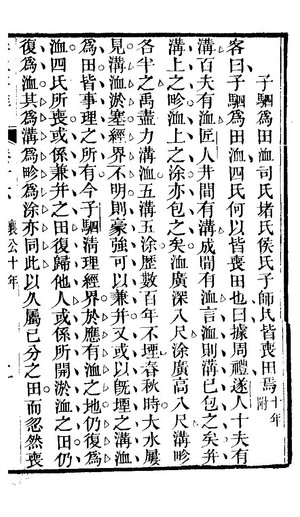 子駟為田洫司氏堵氏侯氏子師氏皆喪田焉十年附
客曰子駟為田洫四氏何以皆喪田也曰據周禮遂人十夫有
溝百夫有洫匠人井間有溝成間有洫言洫則溝已包之矣并
溝上之畛洫上之涂亦包之矣洫廣深八尺涂廣高八尺溝畛
各半之禹盡力溝洫五溝五涂歷數百年不堙春秋時大水屢
見溝洫淤塞經界不明則豪強可以兼并又或以旣堙之溝洫
為田皆事理之所有今子駟清理經界於應有洫之地仍復為
洫四氏所喪或係兼并之田復歸他人或係所開淤洫之田仍
復為洫其為溝為畛為涂亦同此以久屬已分之田而忽然喪
襄公十年